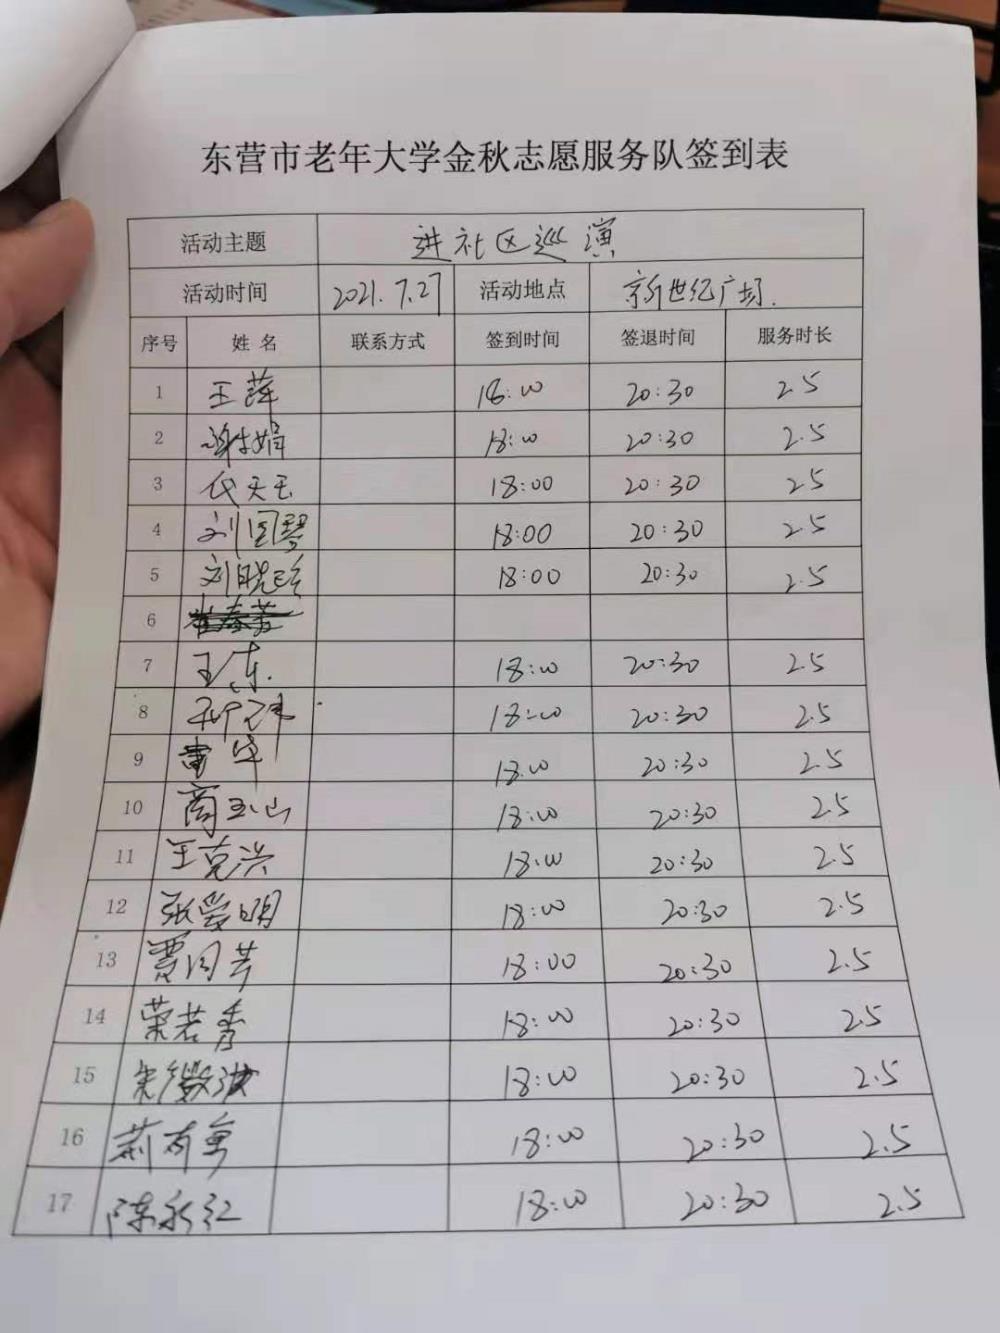 东营市老年大学金秋志愿服务队签到表
活动主题 进社区巡演
活动时间 2021.7.27 活动地点 新世纪广场.
序号 姓名 联系方式 签到时间 签退时间 服务时长
1 王萍 18:00 20:30 2.5
2 谢娟 18:00 20:30 2.5
3 代天玉 18:00 20:30 2.5
4 刘国琴 18:00 20:30 2.5
5 刘晓玲 18:00 20:30 2.5
6
7 王东 18:00 20:30 2.5
8 18:00 20:30 2.5
9 18:00 20:30 2.5
10 商玉山 18:00 20:30 2.5
11 王克兴 18:00 20:30 2.5
12 张爱明 18:00 20:30 2.5
13 贾同芳 18:00 20:30 2.5
14 荣若秀 18:00 20:30 2.5
15 18:00 20:30 2.5
16 18:00 20:30 2.5
17 陈永红 18:00 20:30 2.5